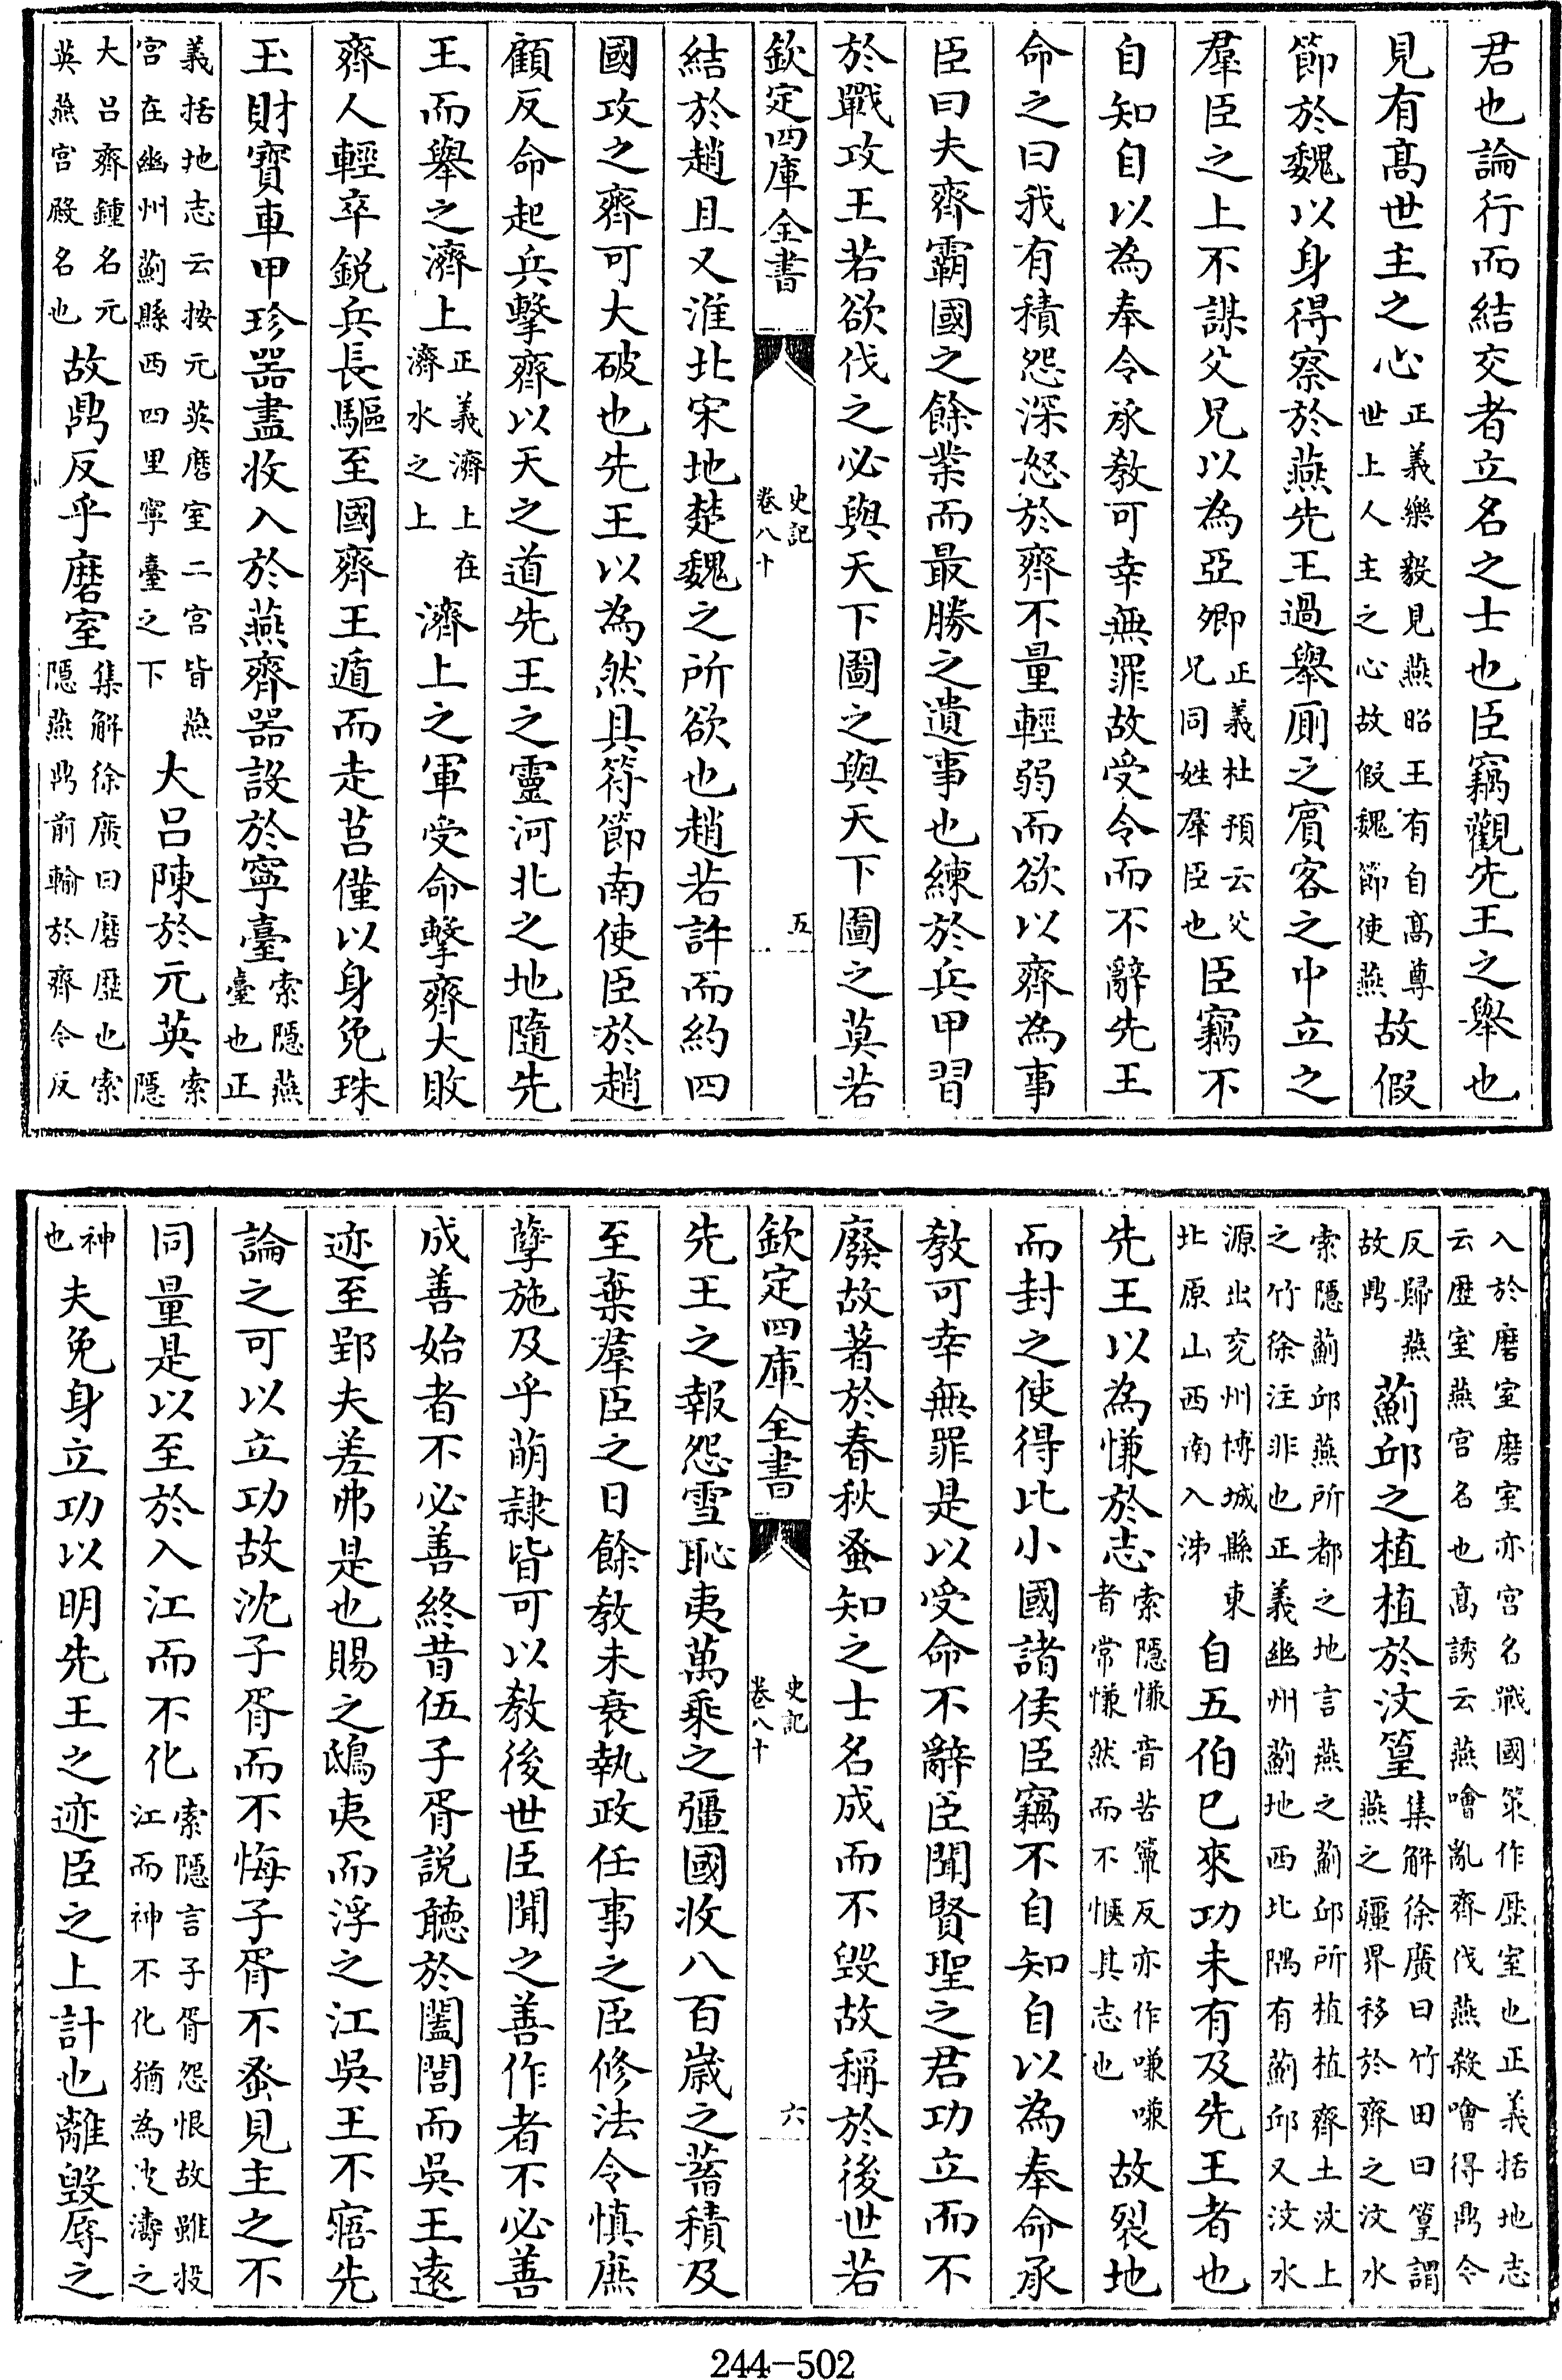 君也論行而結交者立名之士也臣竊觀先王之舉也
見有髙世主之心正義樂毅見燕昭王有自髙尊世上人主之心故假魏節使燕故假
節於魏以身得察於燕先王過舉厠之賔客之中立之
羣臣之上不謀父兄以為亞卿正義杜預云父兄同姓羣臣也臣竊不
自知自以為奉令承敎可幸無罪故受令而不辭先王
命之曰我有積怨深怒於齊不量輕弱而欲以齊為事
臣曰夫齊霸國之餘業而最勝之遺事也練於兵甲習
於戰攻王若欲伐之必與天下圖之與天下圖之莫若
欽定四庫全書
史記
卷八十
五
結於趙且又淮北宋地楚魏之所欲也趙若許而約四
國攻之齊可大破也先王以為然具符節南使臣於趙
顧反命起兵擊齊以天之道先王之靈河北之地隨先
王而舉之濟上正義濟上在濟水之上濟上之軍受命擊齊大敗
齊人輕卒銳兵長驅至國齊王遁而走莒僅以身免珠
玉財寳車甲珍噐盡收入於燕齊噐設於寧臺索隱燕臺也正
義括地志云按元英磨室二宫皆燕宫在幽州薊縣西四里寧臺之下大吕陳於元英索隱
大吕齊鍾名元英燕宫殿名也故鼎反乎磨室集解徐廣曰磨歴也索隱燕鼎前輸於齊今反
入於磨室磨室亦宫名戰國策作歴室也正義括地志云歴室燕宫名也髙誘云燕噲亂齊伐燕殺噲得鼎今
反歸燕故鼎薊邱之植植於汶篁集解徐廣曰竹田曰篁謂燕之疆界移於齊之汶水
索隱薊邱燕所都之地言燕之薊邱所植植齊土汶上之竹徐注非也正義幽州薊地西北隅有薊邱又汶水
源出兖州博城縣東北原山西南入沛自五伯已來功未有及先王者也
先王以為慊於志索隱慊音苦簟反亦作嗛嗛者常慊然而不愜其志也故裂地
而封之使得比小國諸侯臣竊不自知自以為奉命承
敎可幸無罪是以受命不辭臣聞賢聖之君功立而不
廢故著於春秋蚤知之士名成而不毁故稱於後世若
欽定四庫全書
史記
卷八十
六
先王之報怨雪恥夷萬乘之彊國收八百歳之蓄積及
至棄羣臣之日餘敎未衰執政任事之臣修法令慎庶
孽施及乎萌隷皆可以敎後世臣聞之善作者不必善
成善始者不必善終昔伍子胥説聽於闔閭而吳王逺
迹至郢夫差弗是也賜之鴟夷而浮之江吳王不寤先
論之可以立功故沈子胥而不悔子胥不蚤見主之不
同量是以至於入江而不化索隱言子胥怨恨故雖投江而神不化猶為波濤之
神也夫免身立功以明先王之迹臣之上計也離毁辱之
244-502